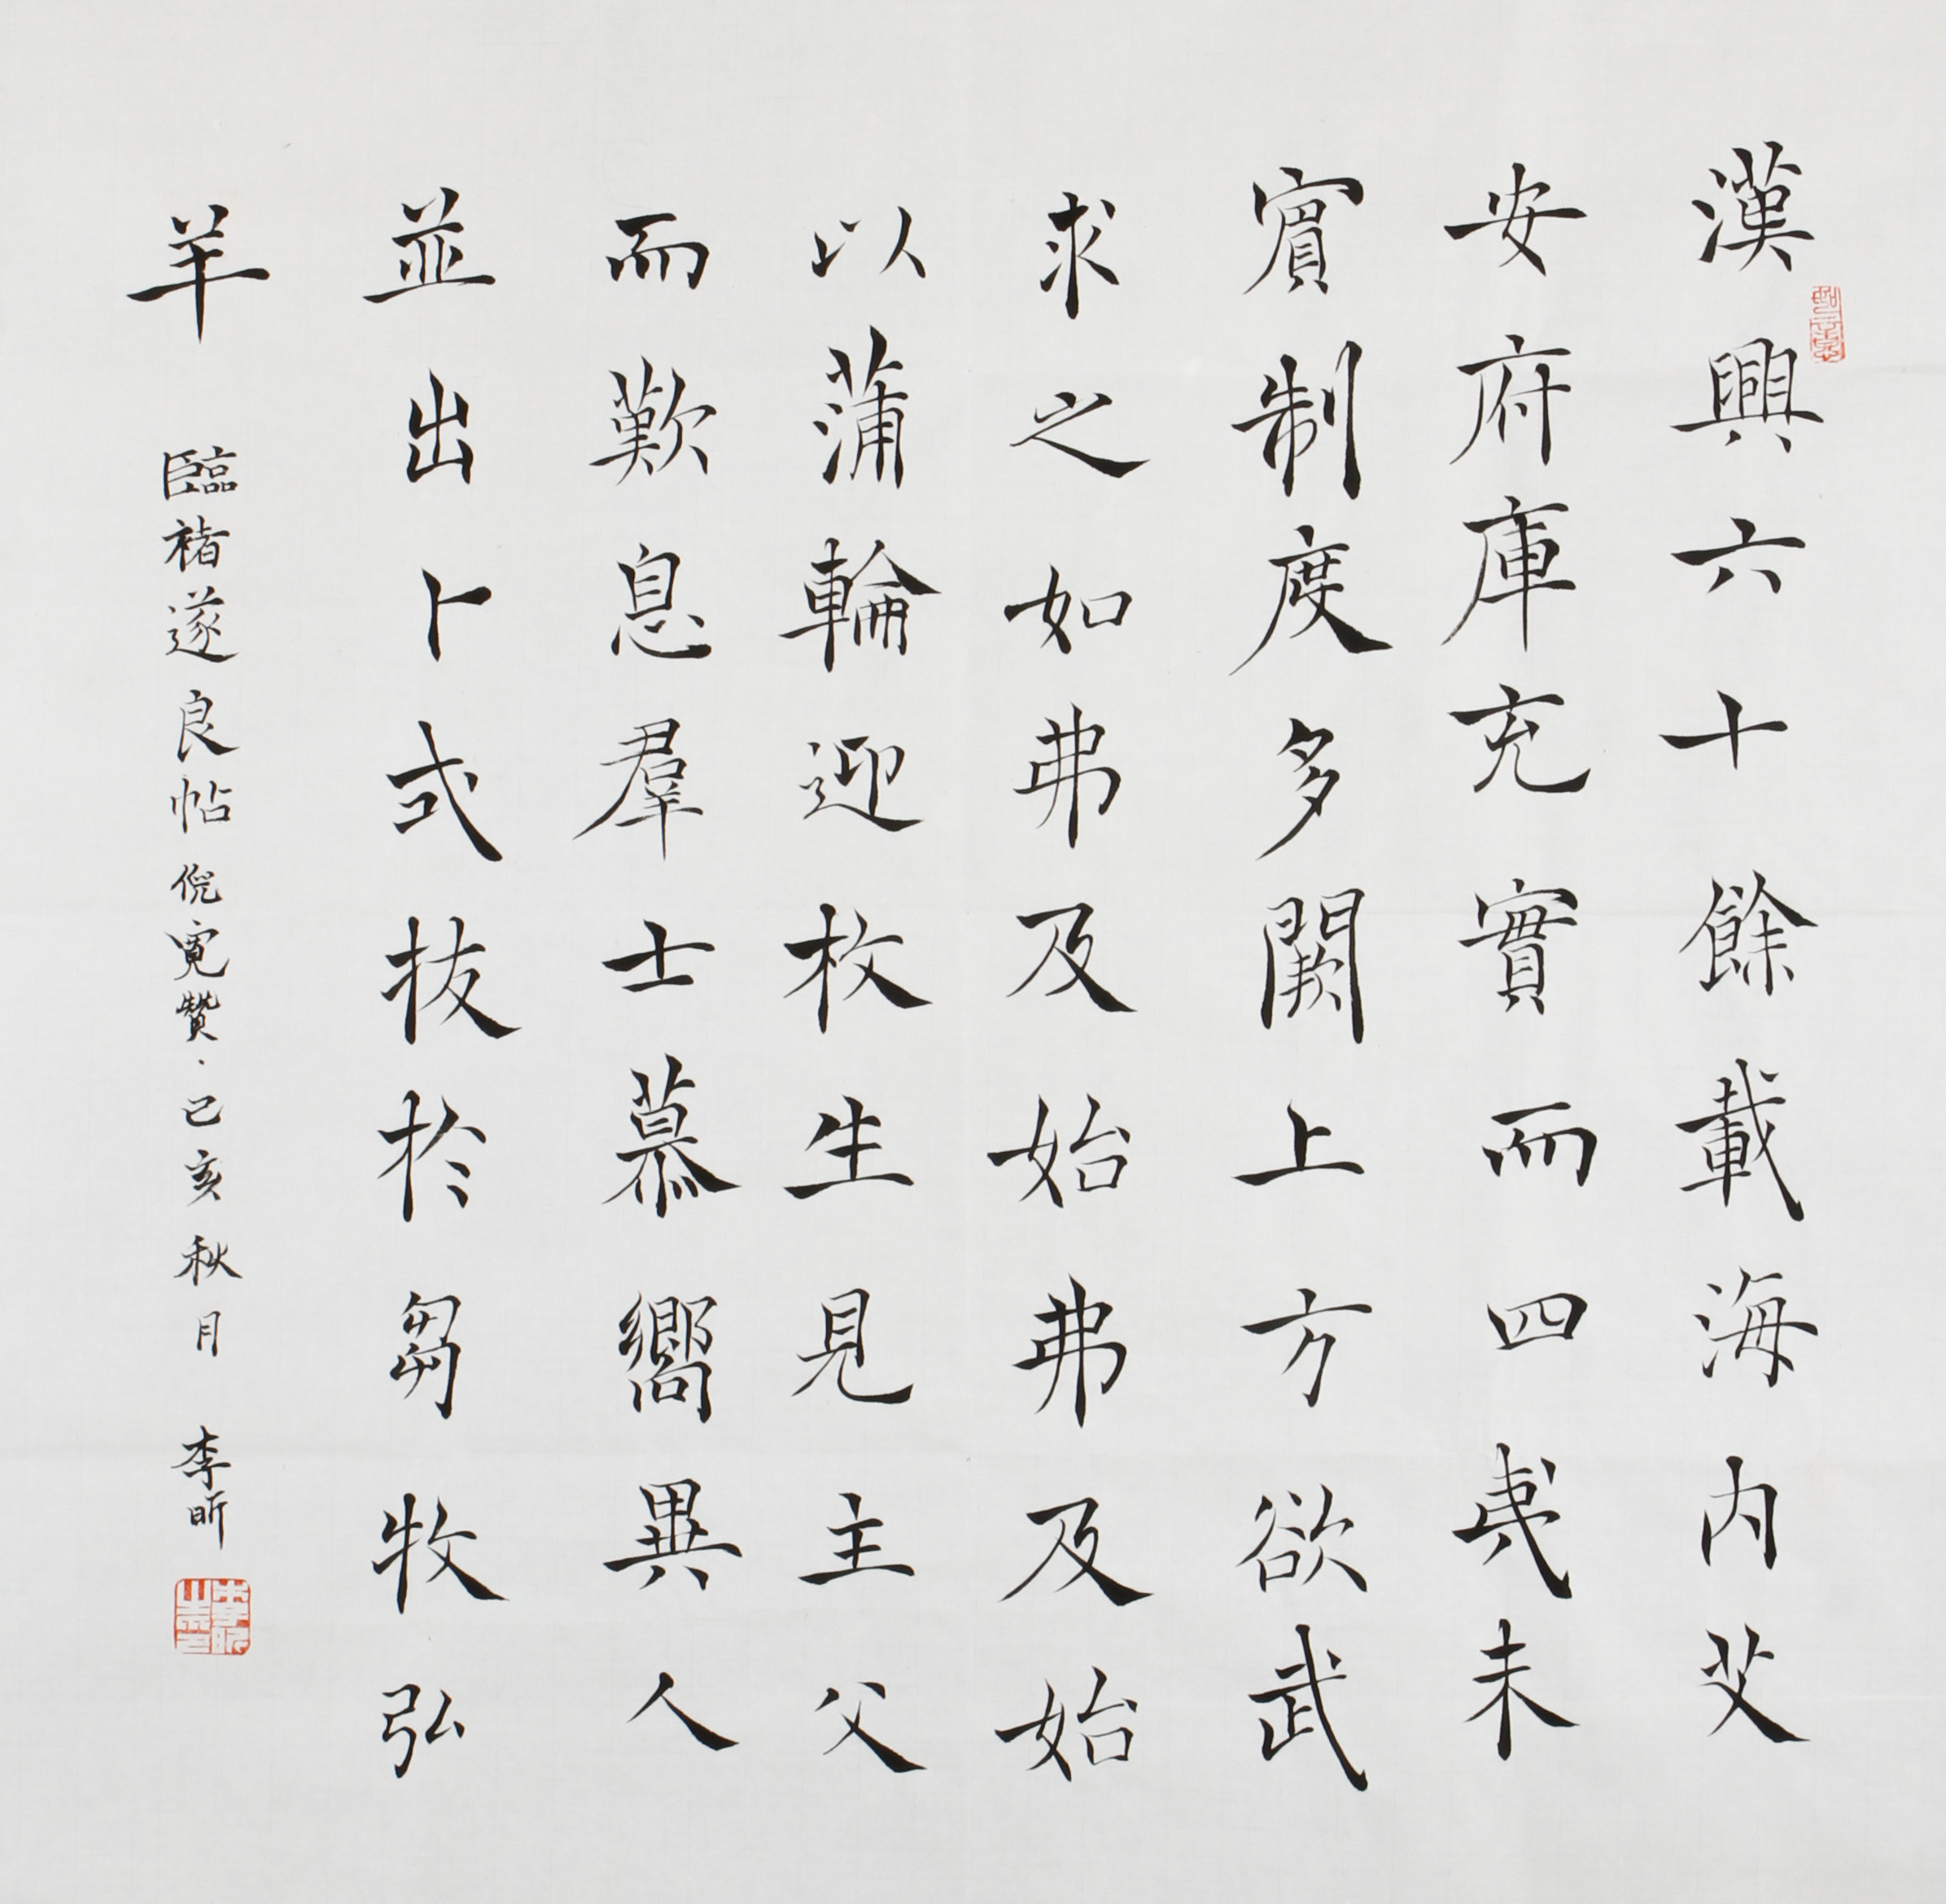 漢興六十餘載海内艾
安府庫充實而四夷未
賓制度多闕上方欲武
求之如弗及始弗及始
以蒲輪迎枚生見主父
而歎息羣士慕嚮異人
並出卜式拔於芻牧弘
羊
臨褚遂良帖倪寬贊·己亥秋月 李昕